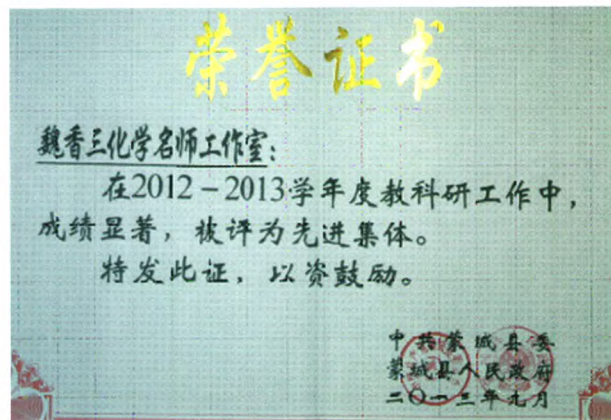 荣誉证书
魏香三化学名师工作室：
在2012－2013学年度教科研工作中，
成绩显著，被评为先进集体。
特发此证，以资鼓励。
中共蒙城县委
蒙城县人民政府
二〇一三年九月